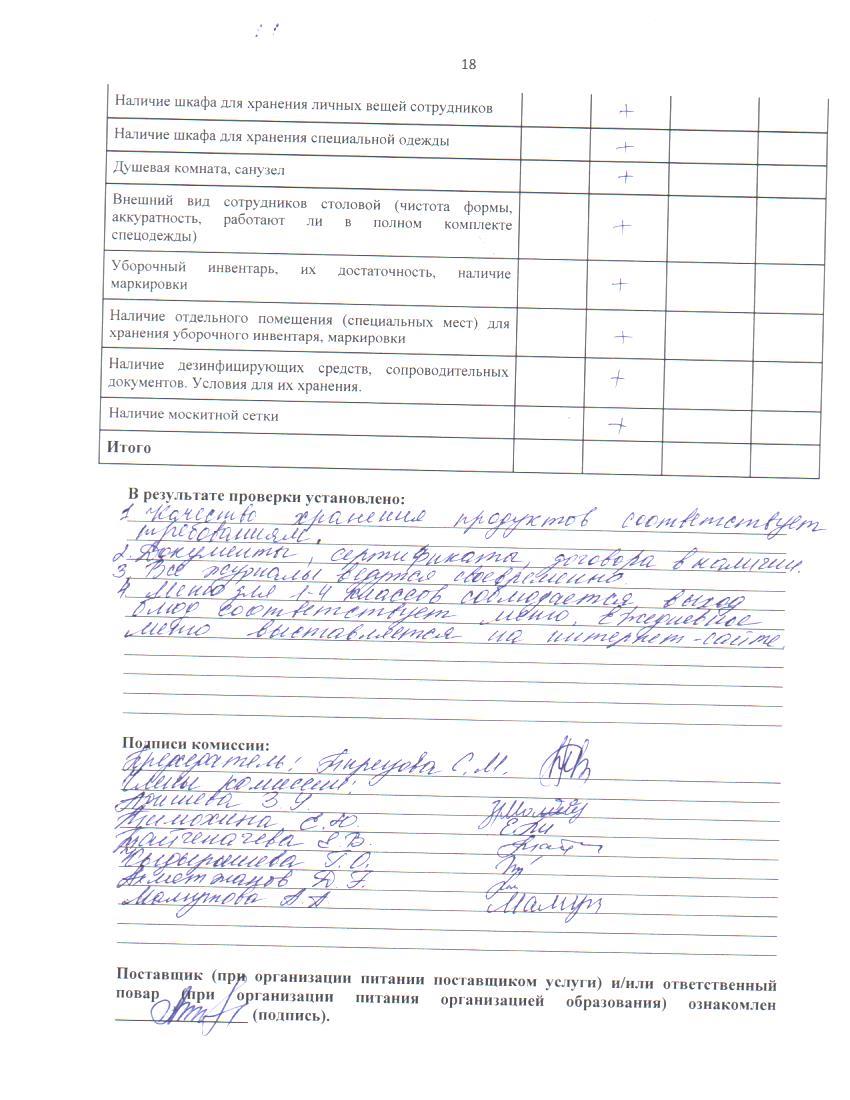 18
Наличие шкафа для хранения личных вещей сотрудников +
Наличие шкафа для хранения специальной одежды +
Душевая комната, санузел +
Внешний вид сотрудников столовой (чистота формы,
аккуратность, работают ли в полном комплекте +
спецодежды)
Уборочный инвентарь, их достаточность, наличие +
маркировки
Наличие отдельного помещения (специальных мест) для
хранения уборочного инвентаря, маркировки +
Наличие дезинфицирующих средств, сопроводительных +
документов. Условия для их хранения.
Наличие москитной сетки +
Итого
В результате проверки установлено:
1. Качество хранения продуктов соответствует
требованиям.
2. Документы, сертификата, договора в наличии.
3. Все журналы ведутся своевременно
4. Меню для 1-4 классов соблюдается, выход
блюд соответствует меню. Ежедневное
меню выставляется на интернет-сайте.
Подписи комиссии:
Председатель: С.М.
Члены комиссии:
З.У.
Тимохина Е.Ю.
В.
Кыдырашева Г.О.
Ахметжанов Д.Г.
А.А
Поставщик (при организации питании поставщиком услуги) и/или ответственный
повар (при организации питания организацией образования) ознакомлен
(подпись).